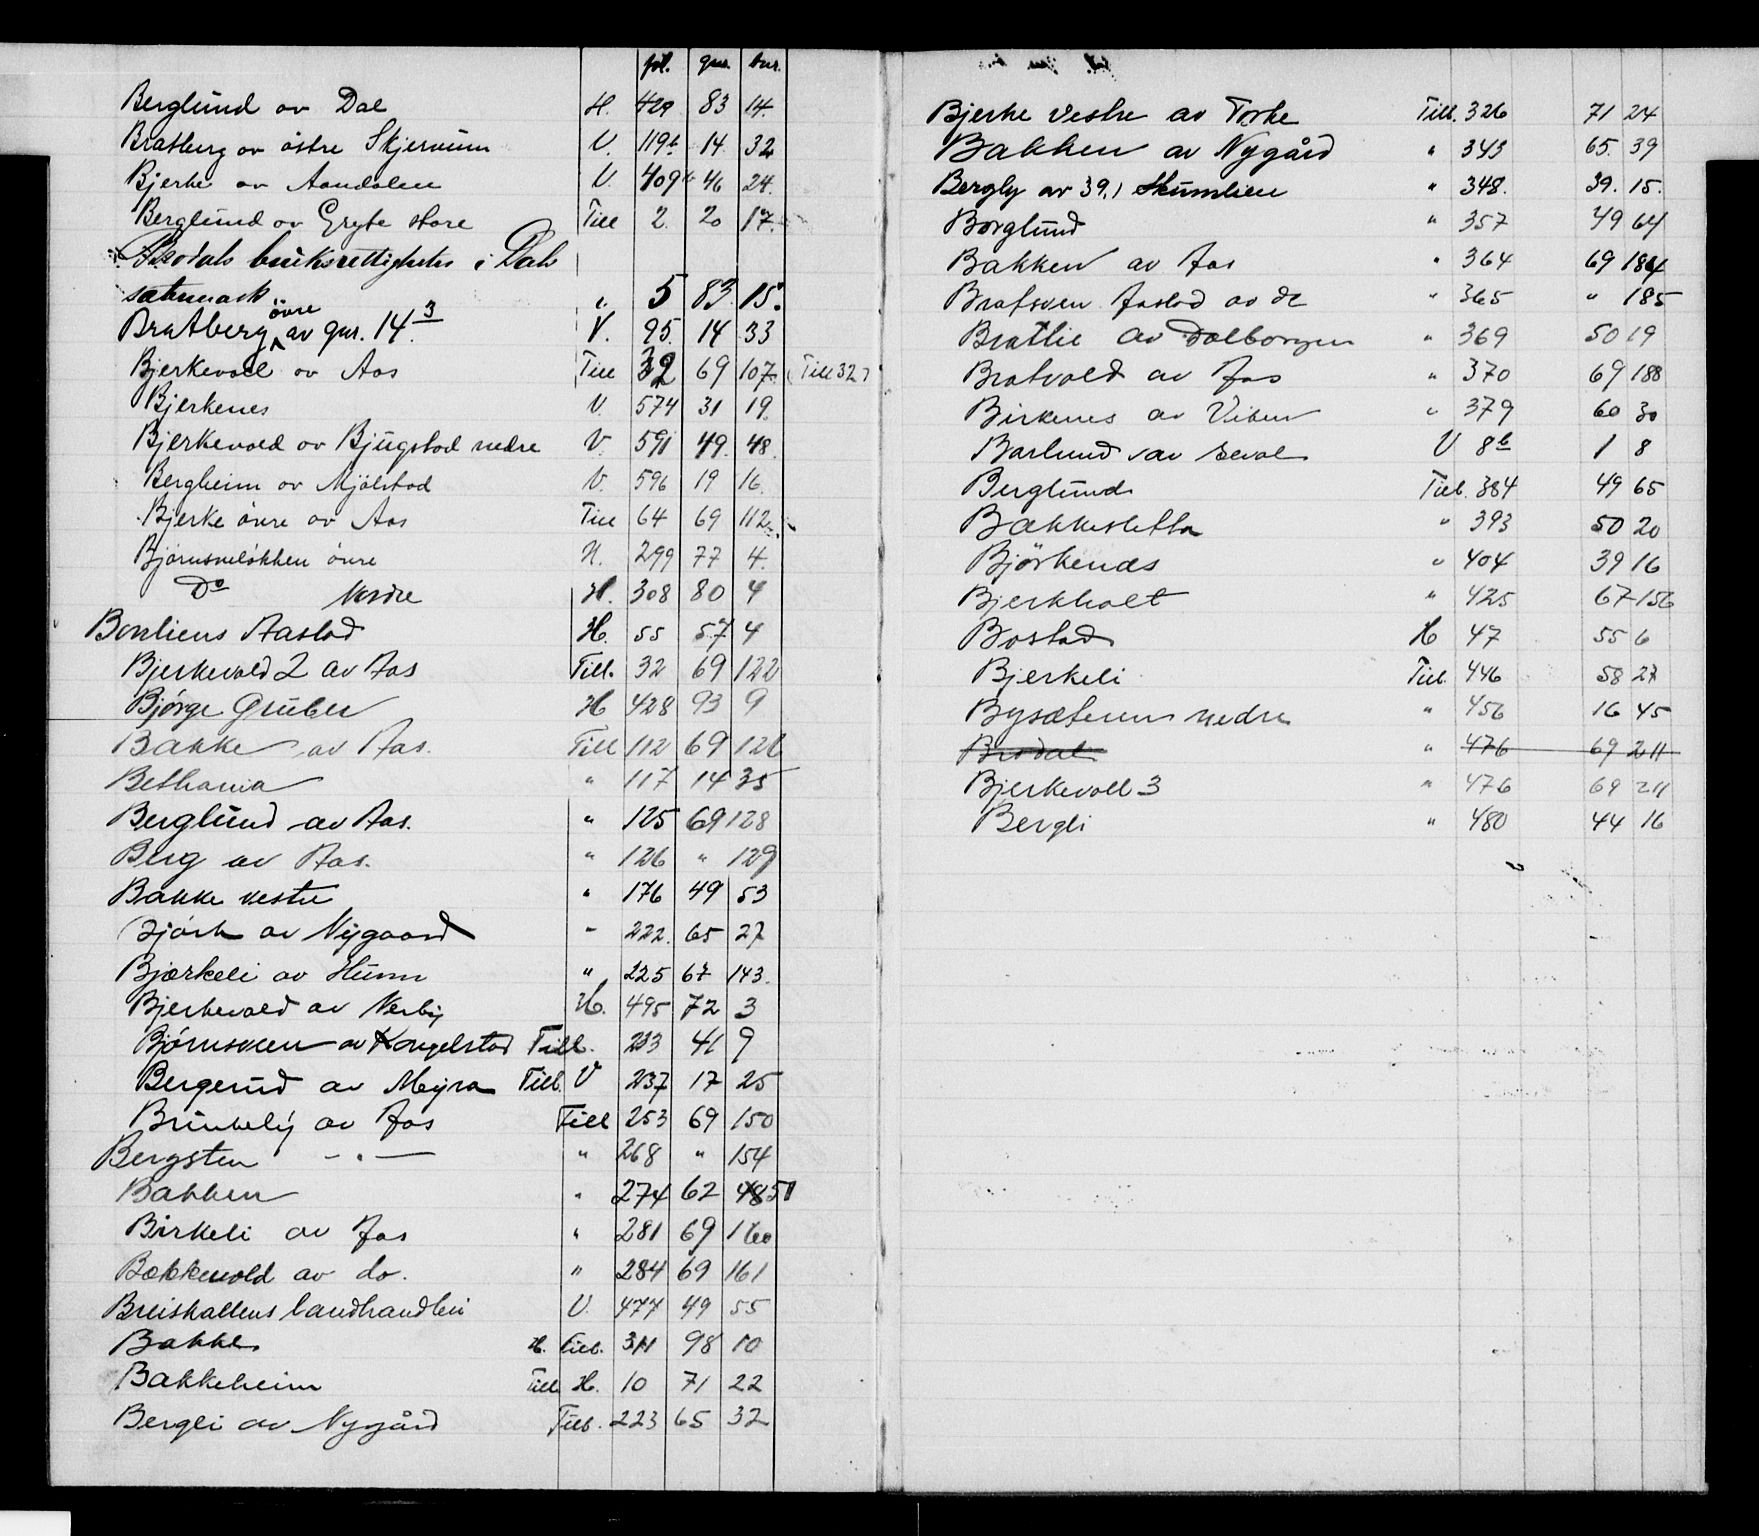 fol. gnr. bnr.
Berglund av Dal H. 429 83 14.
Bratberg av østre Skjerven V. 119b 14 32
Bjerke av Aandalen V. 409b 46 24.
Berglund av Grythe store Till 2. 20 17.
Brodals bruksrettigheter i Dals
sætermark " 5 83 15.
Bratberg øvre av gnr. 14 3 V. 95. 14 33
Bjerkevoll av Aas Till 32 69 107. (Till 32)
Bjerkenes V. 574 31 19.
Bjerkevold av Bjugstad nedre V. 591 49. 48.
Bergheim av Mjølstad V. 596 19 16.
Bjerke øvre av Aas Till 64 69 112.
Bjørnsveløkken øvre H. 299 77 4.
Do Nordre H. 308 80 4
Bonliens Aastad H. 55 57 4
Bjerkevold 2 av Aas Till. 32 69 122
Bjørge Gruber H 428 93 9
Bakke av Aas. Till 112 69 126
Bethania " 117 14 35
Berglund av Aas. " 125 69 128
Berg av Aas. " 126 " 129
Bakke vestre " 176 49 53
Bjørk av Nygaard " 222. 65 27
Bjærkeli av Hunn " 225 67 143.
Bjerkevold av Nerby H. 495 72 3
Bjørnsveen av Kongelstad Till. 233 41 9
Bergerud av Myra Till. V 237 17 25
Brinkely av Aas Till 253 69 150
Bergsten - " - " 268 " 154
Bakken " 274 62 48 51
Birkeli av Aas " 281 69 160
Bækkevold av do. " 284 69 161
Breiskallens landhandleri V. 477 49 55
Bakke H. Till. 311 98 10
Bakkeheim Till H. 10 71 22
Bergli av Nygård Till. 223 65 32
Bjerke vestre av Torke Till. 326 71 24
Bakken av Nygård " 343 65. 39
Bergly av 39.1 Skumlien " 348. 39. 15.
Borglund " 357 49 64
Bakken av Aas " 364 69 184
Bratsveen Aastad av do " 365 " 185
Bratlie av Dalborgen " 369 50 19
Bratvold av Aas " 370 69 188
Birkenes av Viken " 379 60 30
Barlund av Seval V 8b 1 8
Berglund Till. 384 49 65
Bækkesletta " 393 50 20
Björkenæs " 404 39 16
Bjerkholt " 425 67 156
Bostad H 47 55 6
Bjerkeli Till. 446 58 27
Bysæteren nedre " 456 16 45
Brodal " 476 69 211
Bjerkevoll 3 " 476 69 211
Bergli " 480 44 16